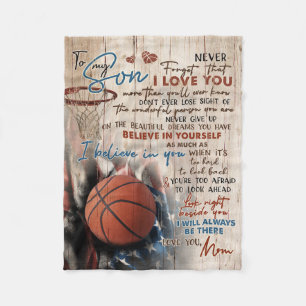 To my Son
NEVER
Forget That
I LOVE YOU
more than you'll ever know
DON'T EVER LOSE SIGHT OF
the wonderful person you are
NEVER GIVE UP
ON THE BEAUTIFUL DREAMS YOU HAVE
BELIEVE IN YOURSELF
AS MUCH AS
I believe in you WHEN IT'S
too hard
to look back
& YOU'RE TOO AFRAID
TO LOOK AHEAD
Look right
beside you
I WILL ALWAYS
BE THERE
LOVE YOU, Mom